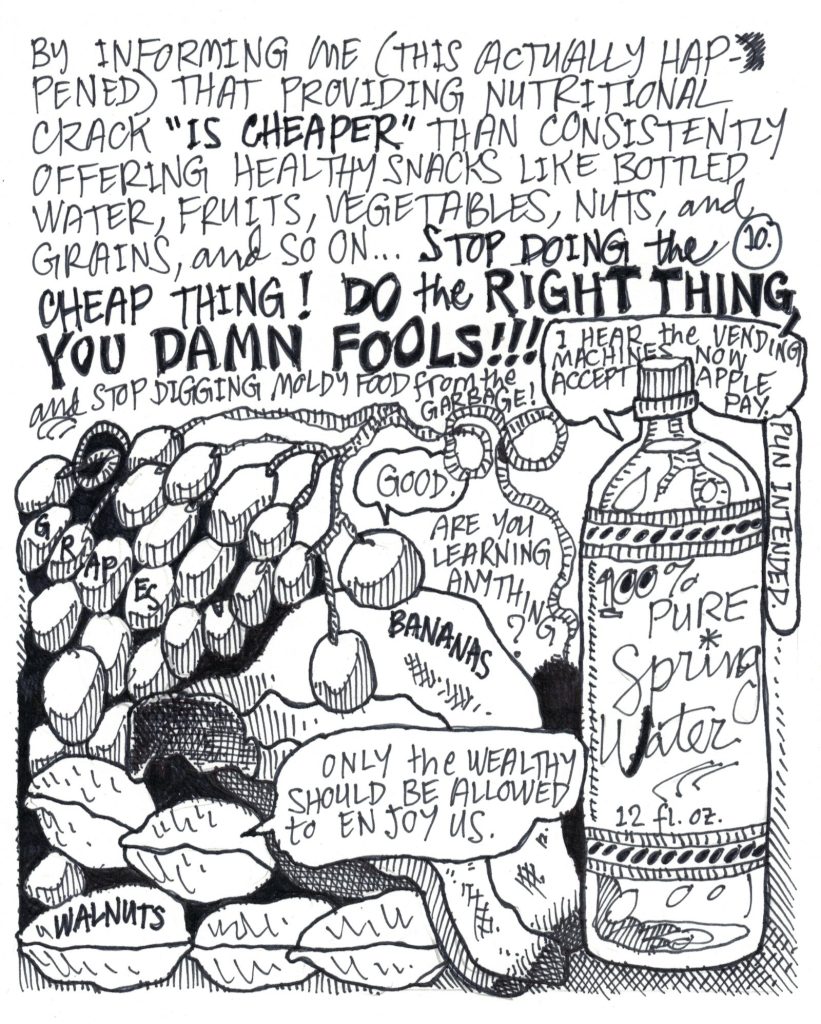 BY INFORMING ME (THIS ACTUALLY HAP-
PENED) THAT PROVIDING NUTRITIONAL
CRACK "IS CHEAPER" THAN CONSISTENTLY
OFFERING HEALTHY SNACKS LIKE BOTTLED
WATER, FRUITS, VEGETABLES, NUTS, and
GRAINS, and SO ON... STOP DOING the
10.
CHEAP THING! DO the RIGHT THING,
YOU DAMN FOOLS!!!
and STOP DIGGING MOLDY FOOD from the
GARBAGE!
I HEAR the VENDING
MACHINES NOW
ACCEPT APPLE
PAY.
PUN INTENDED.
GOOD.
ARE YOU
LEARNING
ANYTHING
?
GRAPES
BANANAS
100%
PURE
Spring*
Water
12 fl. oz.
ONLY the WEALTHY
SHOULD BE ALLOWED
to ENJOY US.
WALNUTS